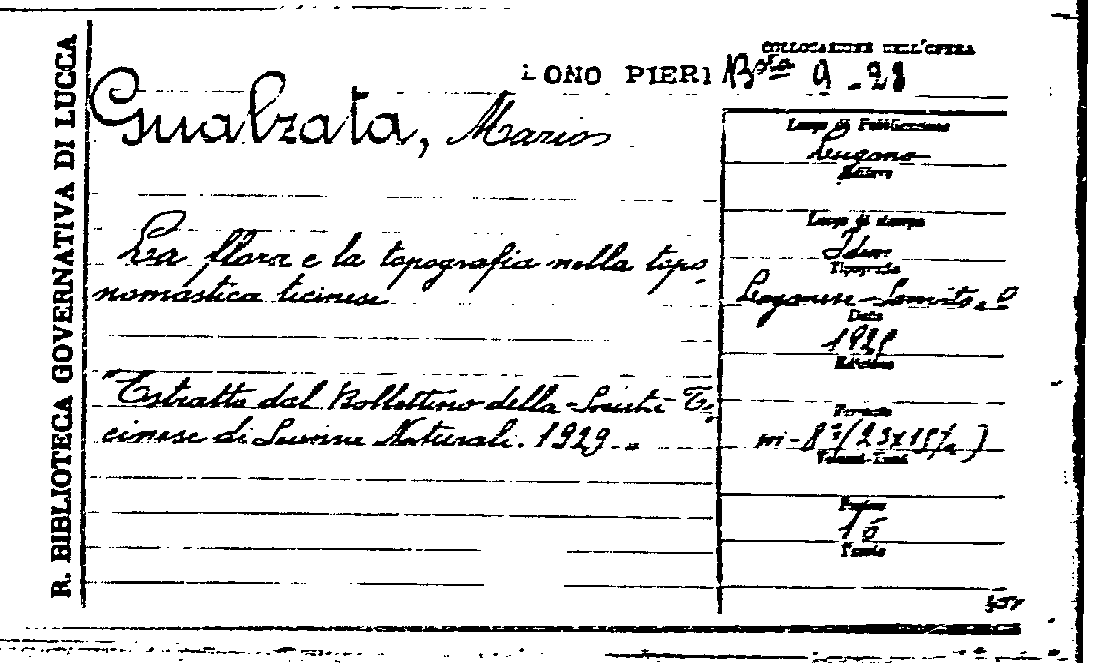 R. BIBLIOTECA GOVERNATIVA DI LUCCA
COLLOCAZIONE DELL'OPERA
ONO PIERI Bsta 9 - 28
Gualzata, Mario
La flora e la topografia nella topo-
nomastica ticinese
Estratto dal Bollettino della Società Ti-
cinese di Scienze Naturali. 1929.
Luogo di Pubblicazione
Lugano
Editore
Luogo di stampa
Idem
Tipografia
Luganese
Data
1929
Edizione
Formato
in-8°
Volumi-Tomi
Pagine
16
Tavole